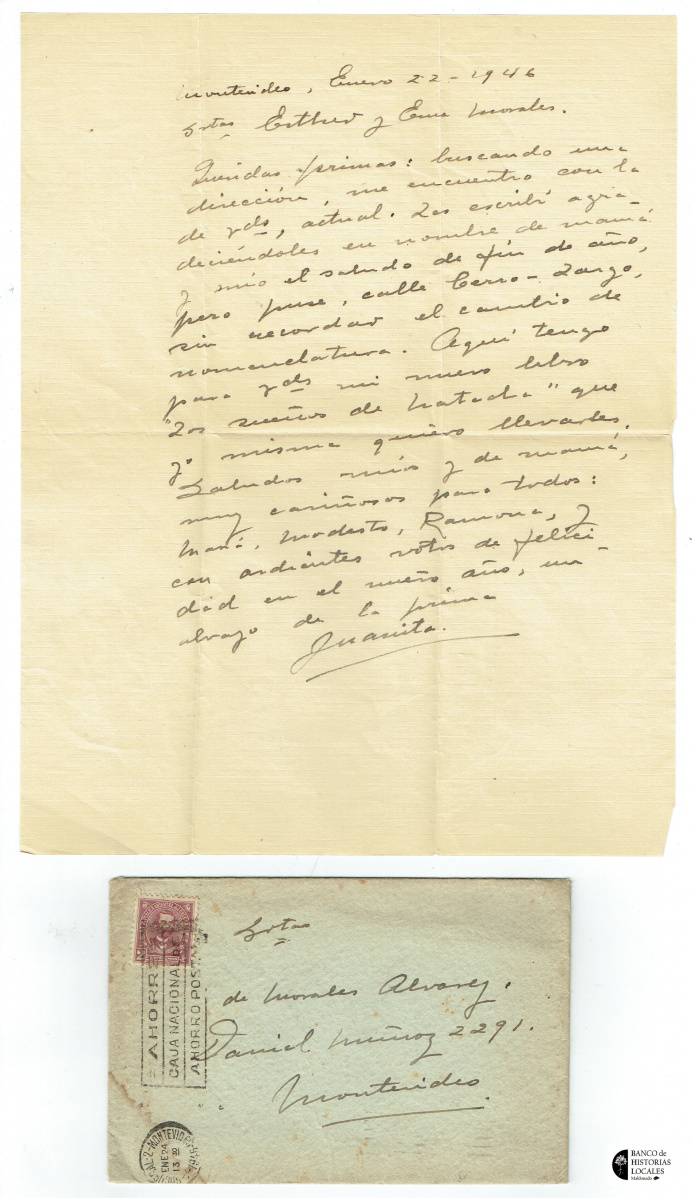 Montevideo, Enero 22-1946
Srtas Esther y Ema Morales.
Queridas primas: buscando una
dirección, me encuentro con la
de Vds, actual. Les escribí agra-
deciéndoles en nombre de mamá
y mío el saludo de fin de año,
pero puse, calle Cerro-Largo,
sin recordar el cambio de
nomenclatura. Aquí tengo
para Vds mi nuevo libro
"Los sueños de Natacha" que
yo misma quiero llevarles.
Saludos míos y de mamá,
muy cariñosos para todos:
Modesto, Ramona, y
con ardientes votos de felici
dad en el nuevo año, un
abrazo de la prima
Juanita.
Srtas
de Morales Alvarez.
Daniel Muñoz 2291.
Montevideo
AHORRE
CAJA NACIONAL DE
AHORRO POSTAL
MONTEVIDEO
ENE 24
13
BANCO de
HISTORIAS
LOCALES
Maldonado